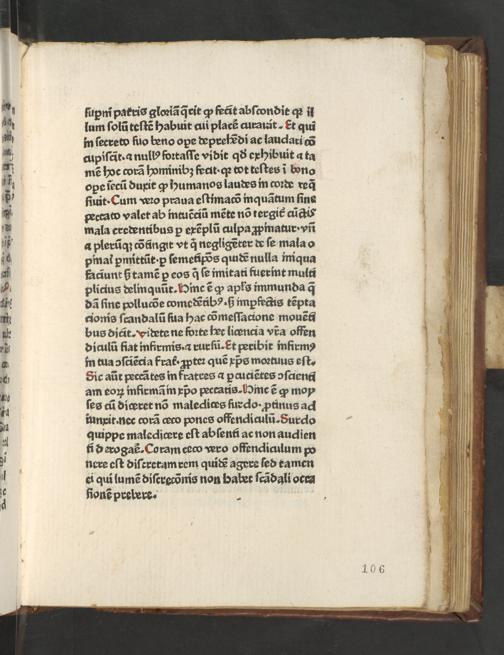 supni patris gloriã q̃rit ꝙ fecit abscondit qꝛ il
lum solũ testẽ habuit cui placẽ curavit. Et qui
in secreto suo bono ope deprehẽdi ac laudari cõ
cupiscit. ⁊ nullꝰ fortasse vidit qď exhibuit ⁊ ta
mẽ hoc corã hominibꝫ fecit. qꝛ tot testes ĩ bono
ope secũ duxit ꝙ humanos laudes in corde req̃
siuit. Cum vero praua estimacõ inquãtum sine
peccato valet ab intuenciũ mẽte nõ tergiť cũctis
mala credentibus ꝑ exẽplũ culpa ꝓpinatur. vñ
⁊ plerũqꝫ cõtingit vt q̃ negligẽter de se mala o
pinaꝛi ꝑmittũt. ꝑ semetip̃os quidẽ nulla iniqua
faciunt sꝫ tamẽ ꝑ eos q̃ se imitati fuerint multi
plicius delinquũt. Hinc ẽ ꝙ apl̃s immunda q̃
dã sine pollucõe comedẽtibꝰ. sꝫ imꝑfectis tẽpta
cionis scandalũ sua hac cõmestacione mouẽti
bus dicit. videte ne forte hec licencia vr̃a offen
diculũ fiat infirmis. ⁊ rursũ. Et peribit infirmꝰ
in tua ↄsciẽcia fraẽ. ꝓpter quẽ xp̃s mortuus est.
Sic aũt peccãtes in fratres ⁊ ꝑcuciẽtes ↄscienti
am eoꝝ infirmã in xp̃o peccatis. Hinc ẽ ꝙ moy
ses cũ diceret nõ maledices surdo. ꝓtinus ad
iunxit. nec corã ceco pones offendiculũ. Surdo
quippe maledicere est absenti ac non audien
ti derogaẽ. Coram ceco vero offendiculum po
nere est discretam rem quidẽ agere sed tamen
ei qui lumẽ discrecõnis non habet scãdali occa
sionẽ prebere.
106